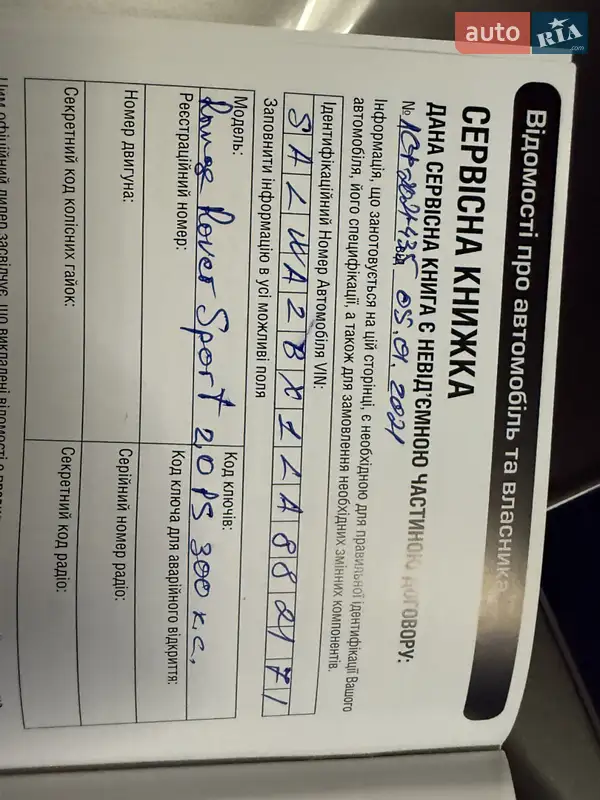 auto RIA.com
Відомості про автомобіль та власника
СЕРВІСНА КНИЖКА
ДАНА СЕРВІСНА КНИГА Є НЕВІД'ЄМНОЮ ЧАСТИНОЮ ДОГОВОРУ:
№ від 05.01.2021
Інформація, що занотовується на цій сторінці, є необхідною для правильної ідентифікації Вашого
автомобіля, його специфікації, а також для замовлення необхідних змінних компонентів.
Ідентифікаційний Номер Автомобіля VIN:
S A L W A 2 B X 1 L A 8 8 2 1 7 1
Заповнити інформацію в усі можливі поля
Модель: Код ключів:
Range Rover Sport 2,0 PS 300 к.с.
Реєстраційний номер: Код ключа для аварійного відкриття:
Номер двигуна: Серійний номер радіо:
Секретний код колісних гайок: Секретний код радіо:
Цим офіційний дилер засвідчує, що викладені відомості є